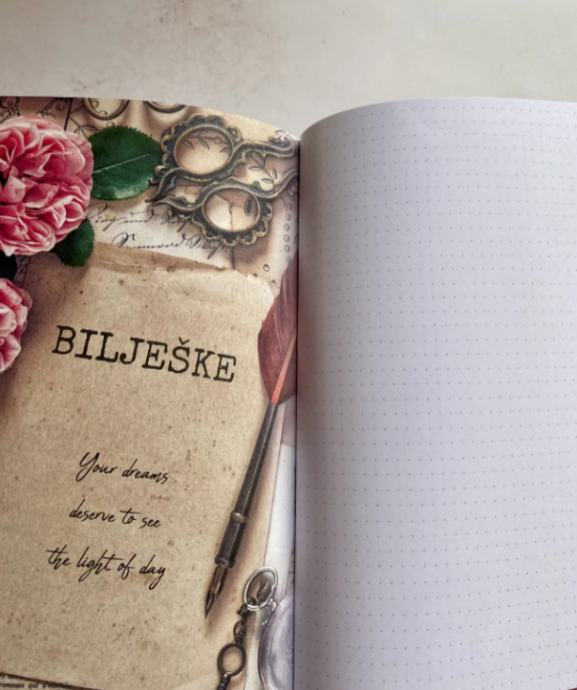 BILJEŠKE
Your dreams
deserve to see
the light of day